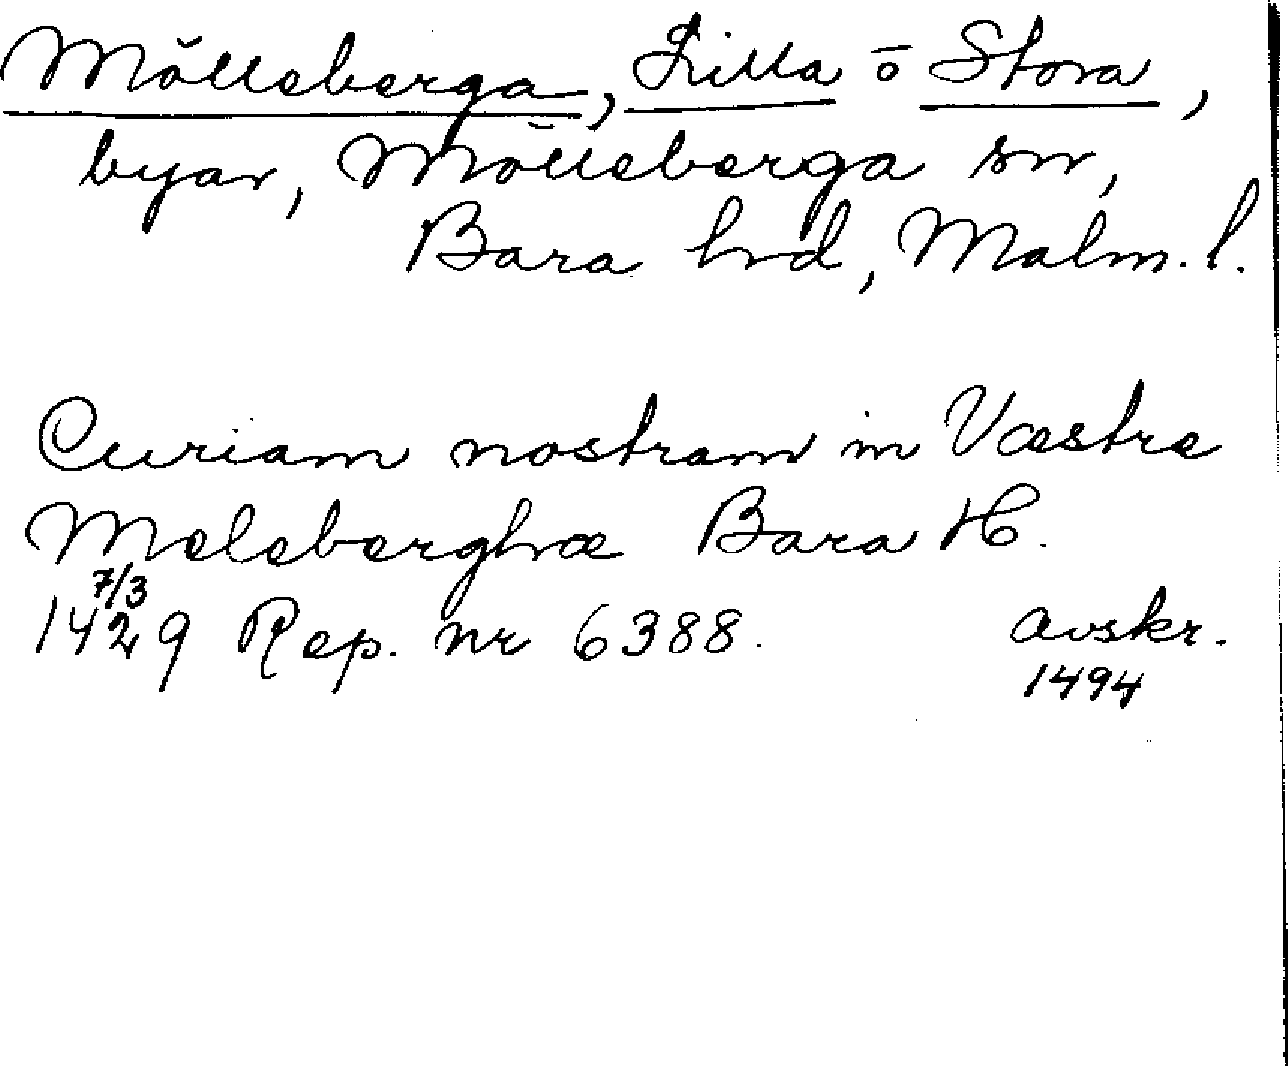 Mölleberga, Lilla o Stora,
byar, Mölleberga sn,
Bara hrd, Malm. l.
Curiam nostram in Væstre
Meleberghæ Bara H.
7/3
1429 Rep. nr 6388.
avskr.
1494